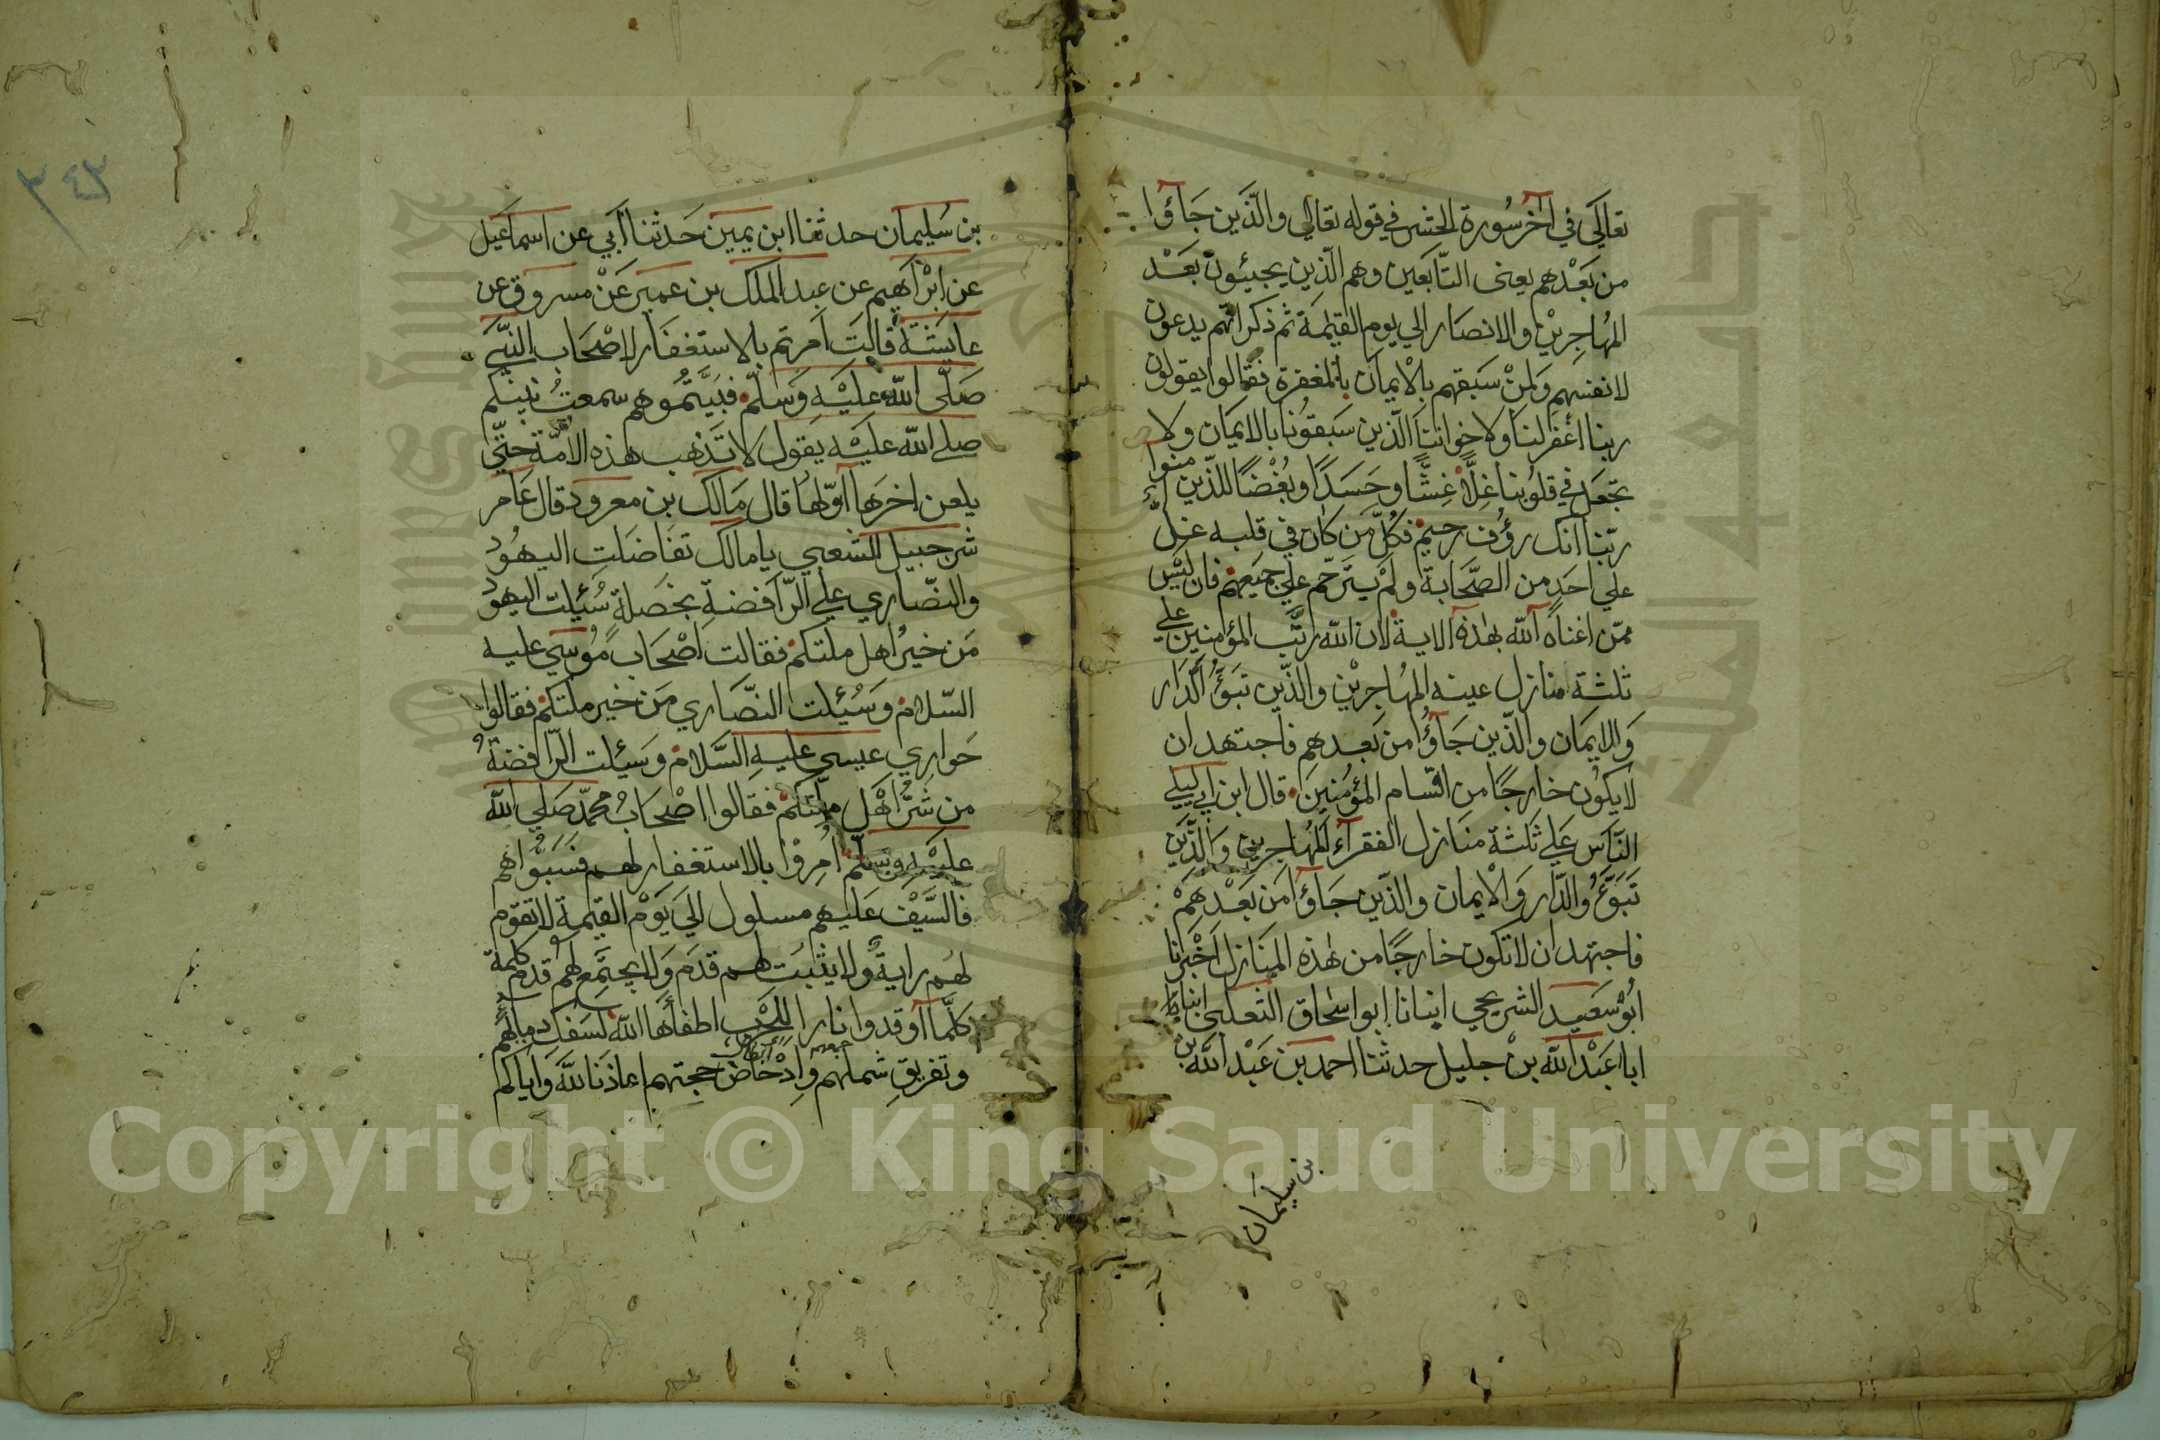 تعالى في آخر سورة الحشر في قوله تعالي والّذين جَاؤُا
من بَعْدهم يعنى التّابعين وهم الّذين يجيئون بَعْد
المهُاجِرينْ والانصَار الي يوم القيٰمَة ثم ذكر انهّم يدعون
لانفسهِم وَلمنْ سَبقهم بالْايمان بالمغفرة فقالوا يقولون
ربنا اغفرلنا ولاخواننا الّذين سَبقوُنا بالايمَان ولا
تجعل في قلوُبنا غِلاًّ غِشًّا وحَسَدًا وبُغْضًا للذّين آمنوا
ربّنا انك رؤُف رحيم فكُلّ مَن كان في قلبه غلّ
علي احَدٍ من الصّحَابة ولَمْ يترحّم علي جميعهم فان ليْس
ممّن اغناه الله بهٰذه الاية لان الله رتّب المؤمنين علي
ثلٰثة منازل عينه المهُاجرِيْن والّذين تبوّؤُا الدّار
وَالايمَان والّذين جَآؤُا من بَعدهم فاجتهد ان
لا يكوُن خارجًا من اقسام المؤمنين قال ابن ابي ليلي
النّاس عَلي ثَلٰثة منَازل الفقرآء المهُاجرين وَالّذين
تَبَوّءُوالدّار وَالْايمان والّذين جَاؤُا من بَعْدهمْ
فاجتهد ان لا تكون خارجًا من هٰذه المنَازل اخْبرنا
ابُوْ سَعيد الشريحي انبانا ابواسْحَاق الثعلبى انبانا
ابا عَبْدالله بنْ جليل حدثنا احمد بن عَبْد الله بن
بن سليمان
٣٤٣
بن سُليمان حدثنا ابن يمين حَدثنا ابي عن اسماعيل
عن ابْراهيم عن عبد الملك بن عمير عَنْ مسروق عن
عايشَة قالت امرتم بالاستغفَار لاصْحَاب النّبيّ
صَلّى الله عليْه وَسَلّم فسَبيّتموُهم سمعتُ نبيّكم
صلي الله عليْه يقول لا تذهب هٰذه الامّة حتّي
يلعن اخرَها اوّلها قال مَالك بن معرود قال عَامر
شرحبيل الشعبي يا مالك تفَاضلت اليهُود
والنّصاري علي الرّافضةِ بخصلة سُئيلت اليهود
مَن خيرُ اهل ملتكم فقالت اصْحَاب مُوسي عليه
السّلام وَسُئيلت النصّاري مَن خير ملتكم فقالوا
حَواري عيسي عليهِ السَّلام وَسئيلت الرّافضةُ
من شرّ اهْل ملّتكم فقالوا اصْحَابُ محمّد صَلي الله
عليْهِ وسَلّم اُمِروْا بالاستغفار لهم فسَبّوْاهم
فالسَّيْف عَليهم مسلول الي يَوْم القيٰمة لا تقوم
لهُم رايةٌ ولا يثبت لهم قدَم وَلا يجتمع لهم كلمة
كلّما آوقدوا نارا للحَرْب اطفأها الله بسَفك دمائهم
وتفريق شملهم وَاِدْحَاض حجتهم اعاذَنا الله وَاياكم
Copyright © King Saud University